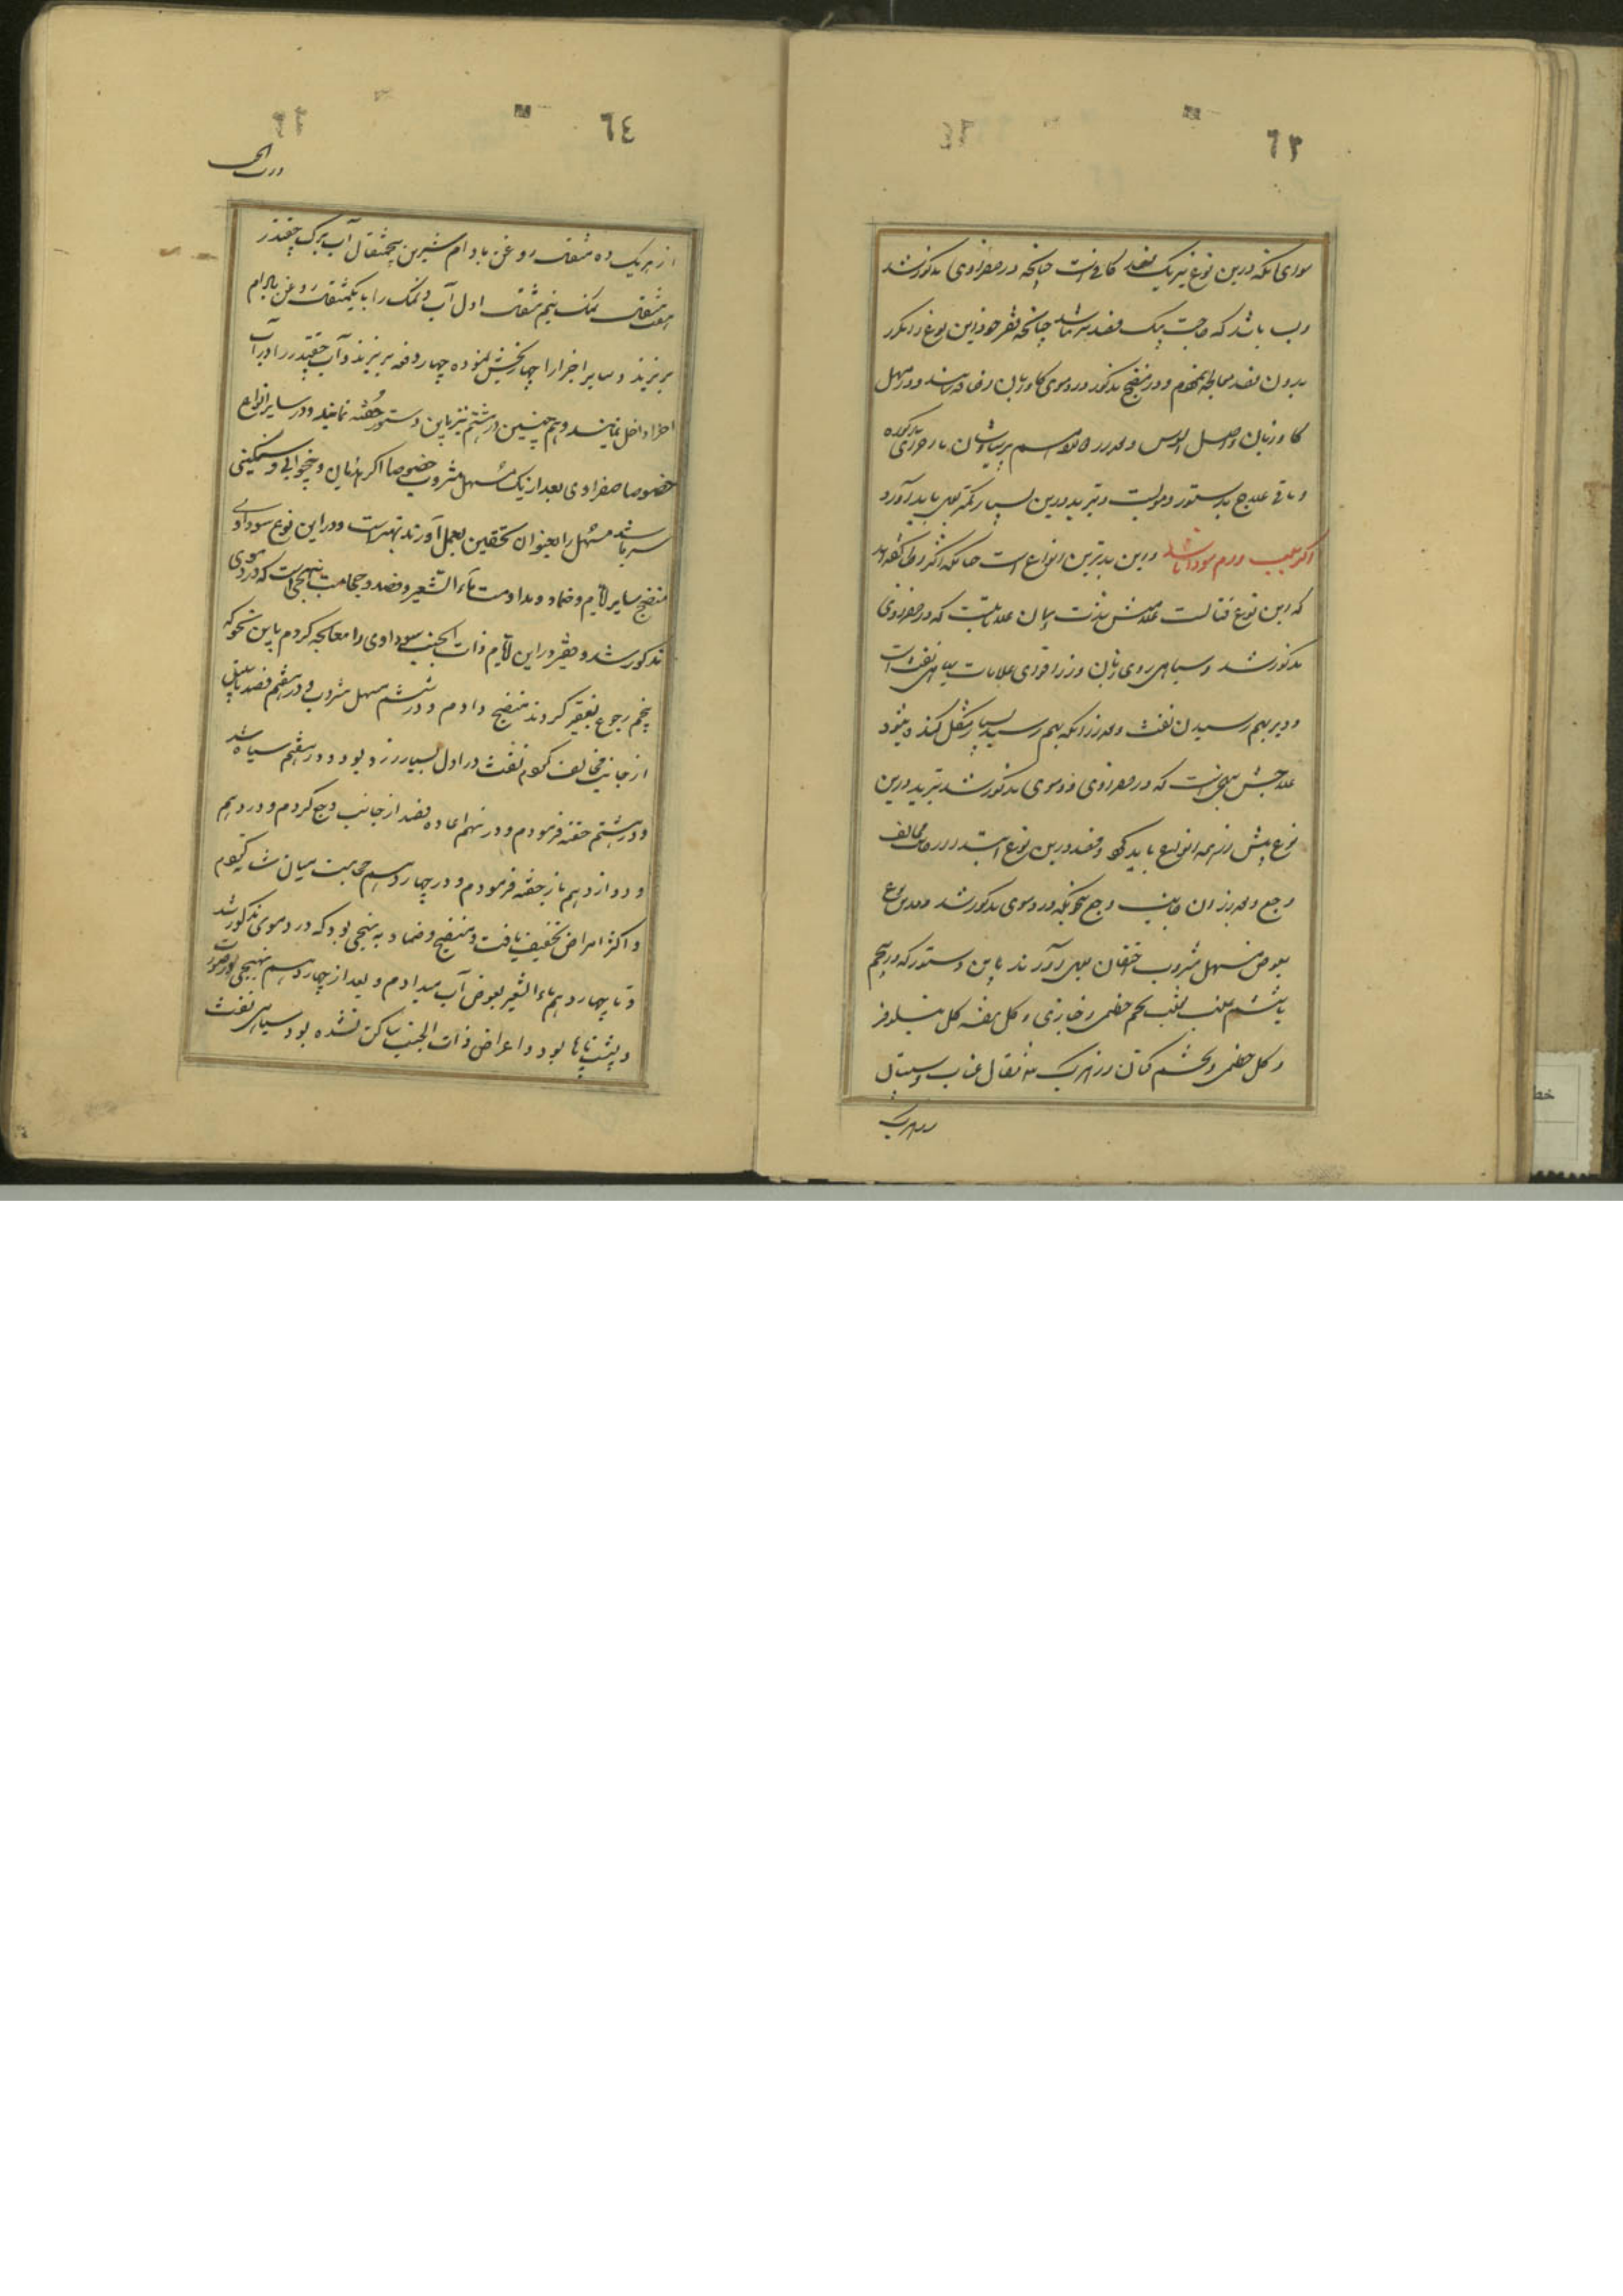 ٦٣
سوای آنکه درین نوع نیز یک فصد کافی است چنانچه در صفراوی مذکور شد
و بسا باشد که حاجت بیک فصد نیز نباشد چنانچه فقیر خود این نوع را مکرر
بدون فصد معالجه نموده‌ام و در منضج مذکور در دموی کاوزبان اضافه نمایند و در مسهل
کاوزبان و اصل السوس و پرسیاوشان مذکوره
و باقی علاج بدستور دمویست و تبرید درین بسیار کمتر بعمل باید آورد
اکر بسبب ورم سودا باشد و این بدترین انواع است چنانکه اکثر اطبا کفته‌اند
که این نوع قتالست علامتش بذات همان علاماتیست که در صفراوی
مذکور شد و سیاهی روی زبان و از اقوای علامات سیاهی نفث است
و دیر بهم رسیدن نفث و بعد از آنکه بهم رسید بسیار مشکل کنده میشود
علاجش بنهجی است که در صفراوی و دموی مذکور شد تبرید درین
نوع بیش از همه انواع باید کرد و فصد درین نوع ابتدا از جانب مخالف
وجع و بعد از آن جانب وجع بنحویکه در دموی مذکور شد و درین نوع
بعوض مسهل مشروب احتقان بعمل آورند باین دستور که در پنجم
یا ششم عنب الثعلب تخم خطمی و خبازی و کل بنفشه کل نیلوفر
و کل خطمی و تخم کتان از هر یک سه مثقال عناب و سپستان
از هر یک
٦٤
از هر یک ده مثقال روغن بادام شیرین پنجمثقال آب برک چقندر
هفت مثقال نمک نیم مثقال اول آب و نمک را با یکمثقال روغن بادام
بریزند و سایر اجزا را چهار بخش نموده چهار دفعه بریزند و آب چقندر را در آب
اجزا داخل نمایند و هم چنین در ششم نیز باین دستور حقنه نمایند و در سایر انواع
خصوصا صفراوی بعد از یک مسهل مشروب خصوصا اکر هذیان و بیخوابی و سنکینی
سر باشد مسهل را بعنوان تحقین بعمل آورند بهتر است و در این نوع سوداوی
منضج سایر لایام و ضماد و مداومت ماء الشعیر و فصد و حجامت بنهجی است که در دموی
مذکور شد و فقیر در این لایام ذات الجنب سوداوی را معالجه کردم باین نحو که
پنجم رجوع بفقیر کردند منضج دادم و در ششم مسهل مشروب و در هفتم فصد باسلیق
از جانب مخالف کردم نفث در اول بسیار زرد بود و در هفتم سیاه شد
و در هشتم حقنه فرمودم و در نهم اعاده فصد از جانب وجع کردم و در دهم
و دوازدهم باز حقنه فرمودم و در چهاردهم حجامت میان شانه کردم
و اکثر امراض تخفیف یافت و منضج و ضماد به نهجی بود که در دموی مذکور شد
و تا چهاردهم ماء الشعیر بعوض آب میدادم و بعد از چهاردهم
و پشت پاها بود و اعراض ذات الجنب ساکن نشده بود سیاهی نفث